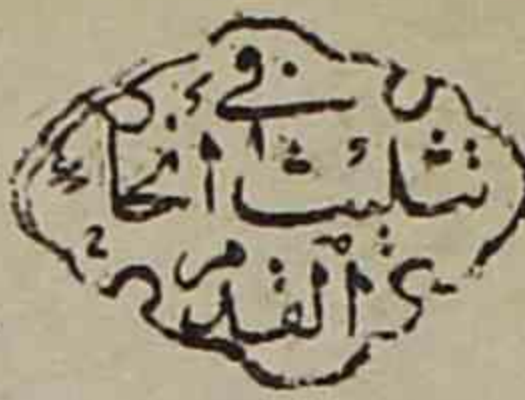 في
تثليث انحا
القدم